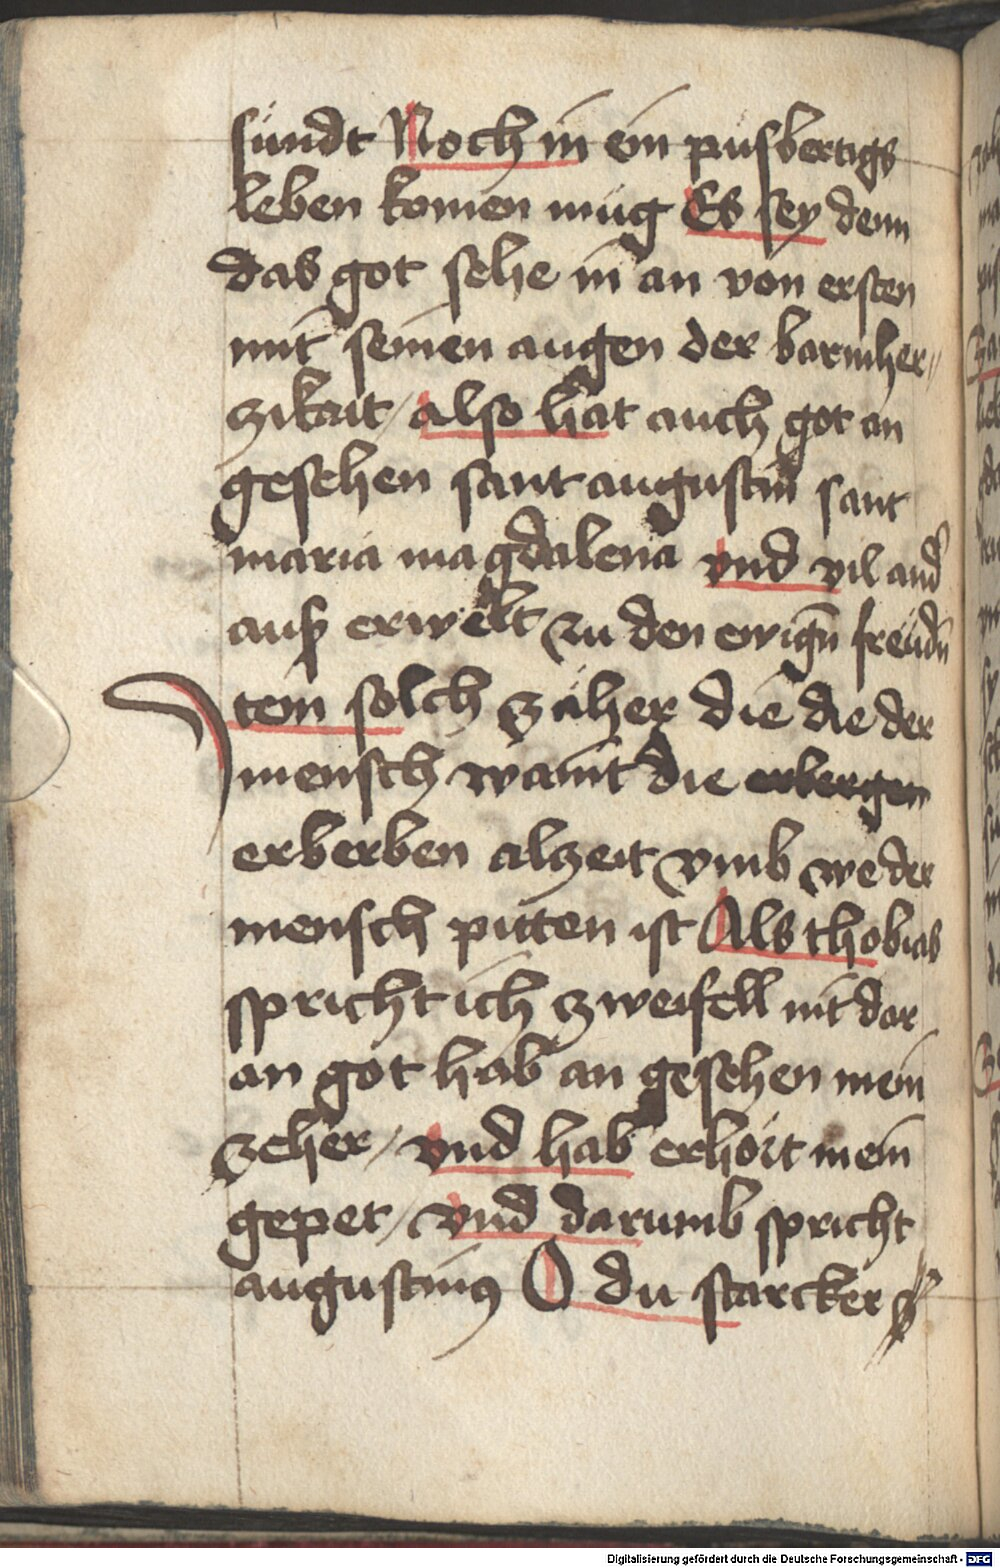 sundt Noch in ein pusbertigs
leben komen mug Es sey denn
das got sehe in an von ersten
mit seinen augen der barmher„
zikait / also hat auch got an
gesehen sant augustin sant
maria magdalena vnd vil and̓
auß erwelt zu den ewigñ freudñ
Item solch zäher die die der
mensch waint die erbergen
erberben alzeit vmb we der
mensch pitten ist Als thobias
spricht ich zweifell nit dar
an got hab an gesehen mein
zeher / vnd hab erhört mein
gepet / vnd darumb spricht
augustinꝰ O du starcker
Digitalisierung gefördert durch die Deutsche Forschungsgemeinschaft - DFG